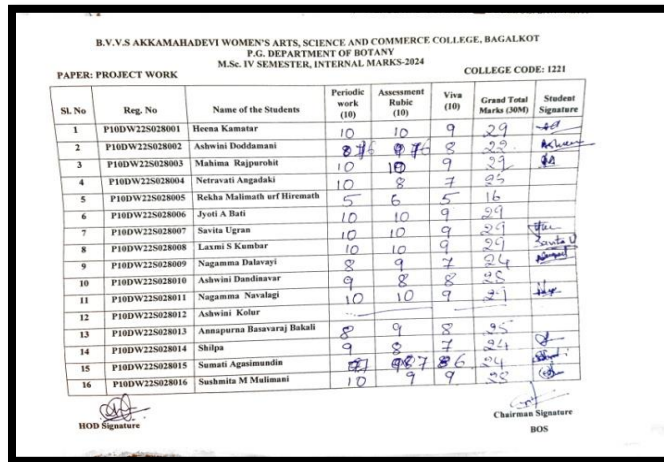 B.V.V.S AKKAMAHADEVI WOMEN'S ARTS, SCIENCE AND COMMERCE COLLEGE, BAGALKOT
P.G. DEPARTMENT OF BOTANY
M.Sc. IV SEMESTER, INTERNAL MARKS-2024
PAPER: PROJECT WORK COLLEGE CODE: 1221
Sl. No Reg. No Name of the Students Periodic work (10) Assessment Rubic (10) Viva (10) Grand Total Marks (30M) Student Signature
1 P10DW22S028001 Heena Kamatar 10 10 9 29
2 P10DW22S028002 Ashwini Doddamani 8 22
3 P10DW22S028003 Mahima Rajpurohit 10 10 9 29
4 P10DW22S028004 Netravati Angadaki 10 8 7 25
5 P10DW22S028005 Rekha Malimath urf Hiremath 5 6 5 16
6 P10DW22S028006 Jyoti A Bati 10 10 9 29
7 P10DW22S028007 Savita Ugran 10 10 9 29
8 P10DW22S028008 Laxmi S Kumbar 10 10 9 29 Savita U
9 P10DW22S028009 Nagamma Dalavayi 8 9 7 24
10 P10DW22S028010 Ashwini Dandinavar 9 8 8 25
11 P10DW22S028011 Nagamma Navalagi 10 10 9 29
12 P10DW22S028012 Ashwini Kolur
13 P10DW22S028013 Annapurna Basavaraj Bakali 8 9 8 25
14 P10DW22S028014 Shilpa 9 8 7 24
15 P10DW22S028015 Sumati Agasimundin 7 6 24
16 P10DW22S028016 Sushmita M Mulimani 10 9 9 28
HOD Signature
Chairman Signature
BOS